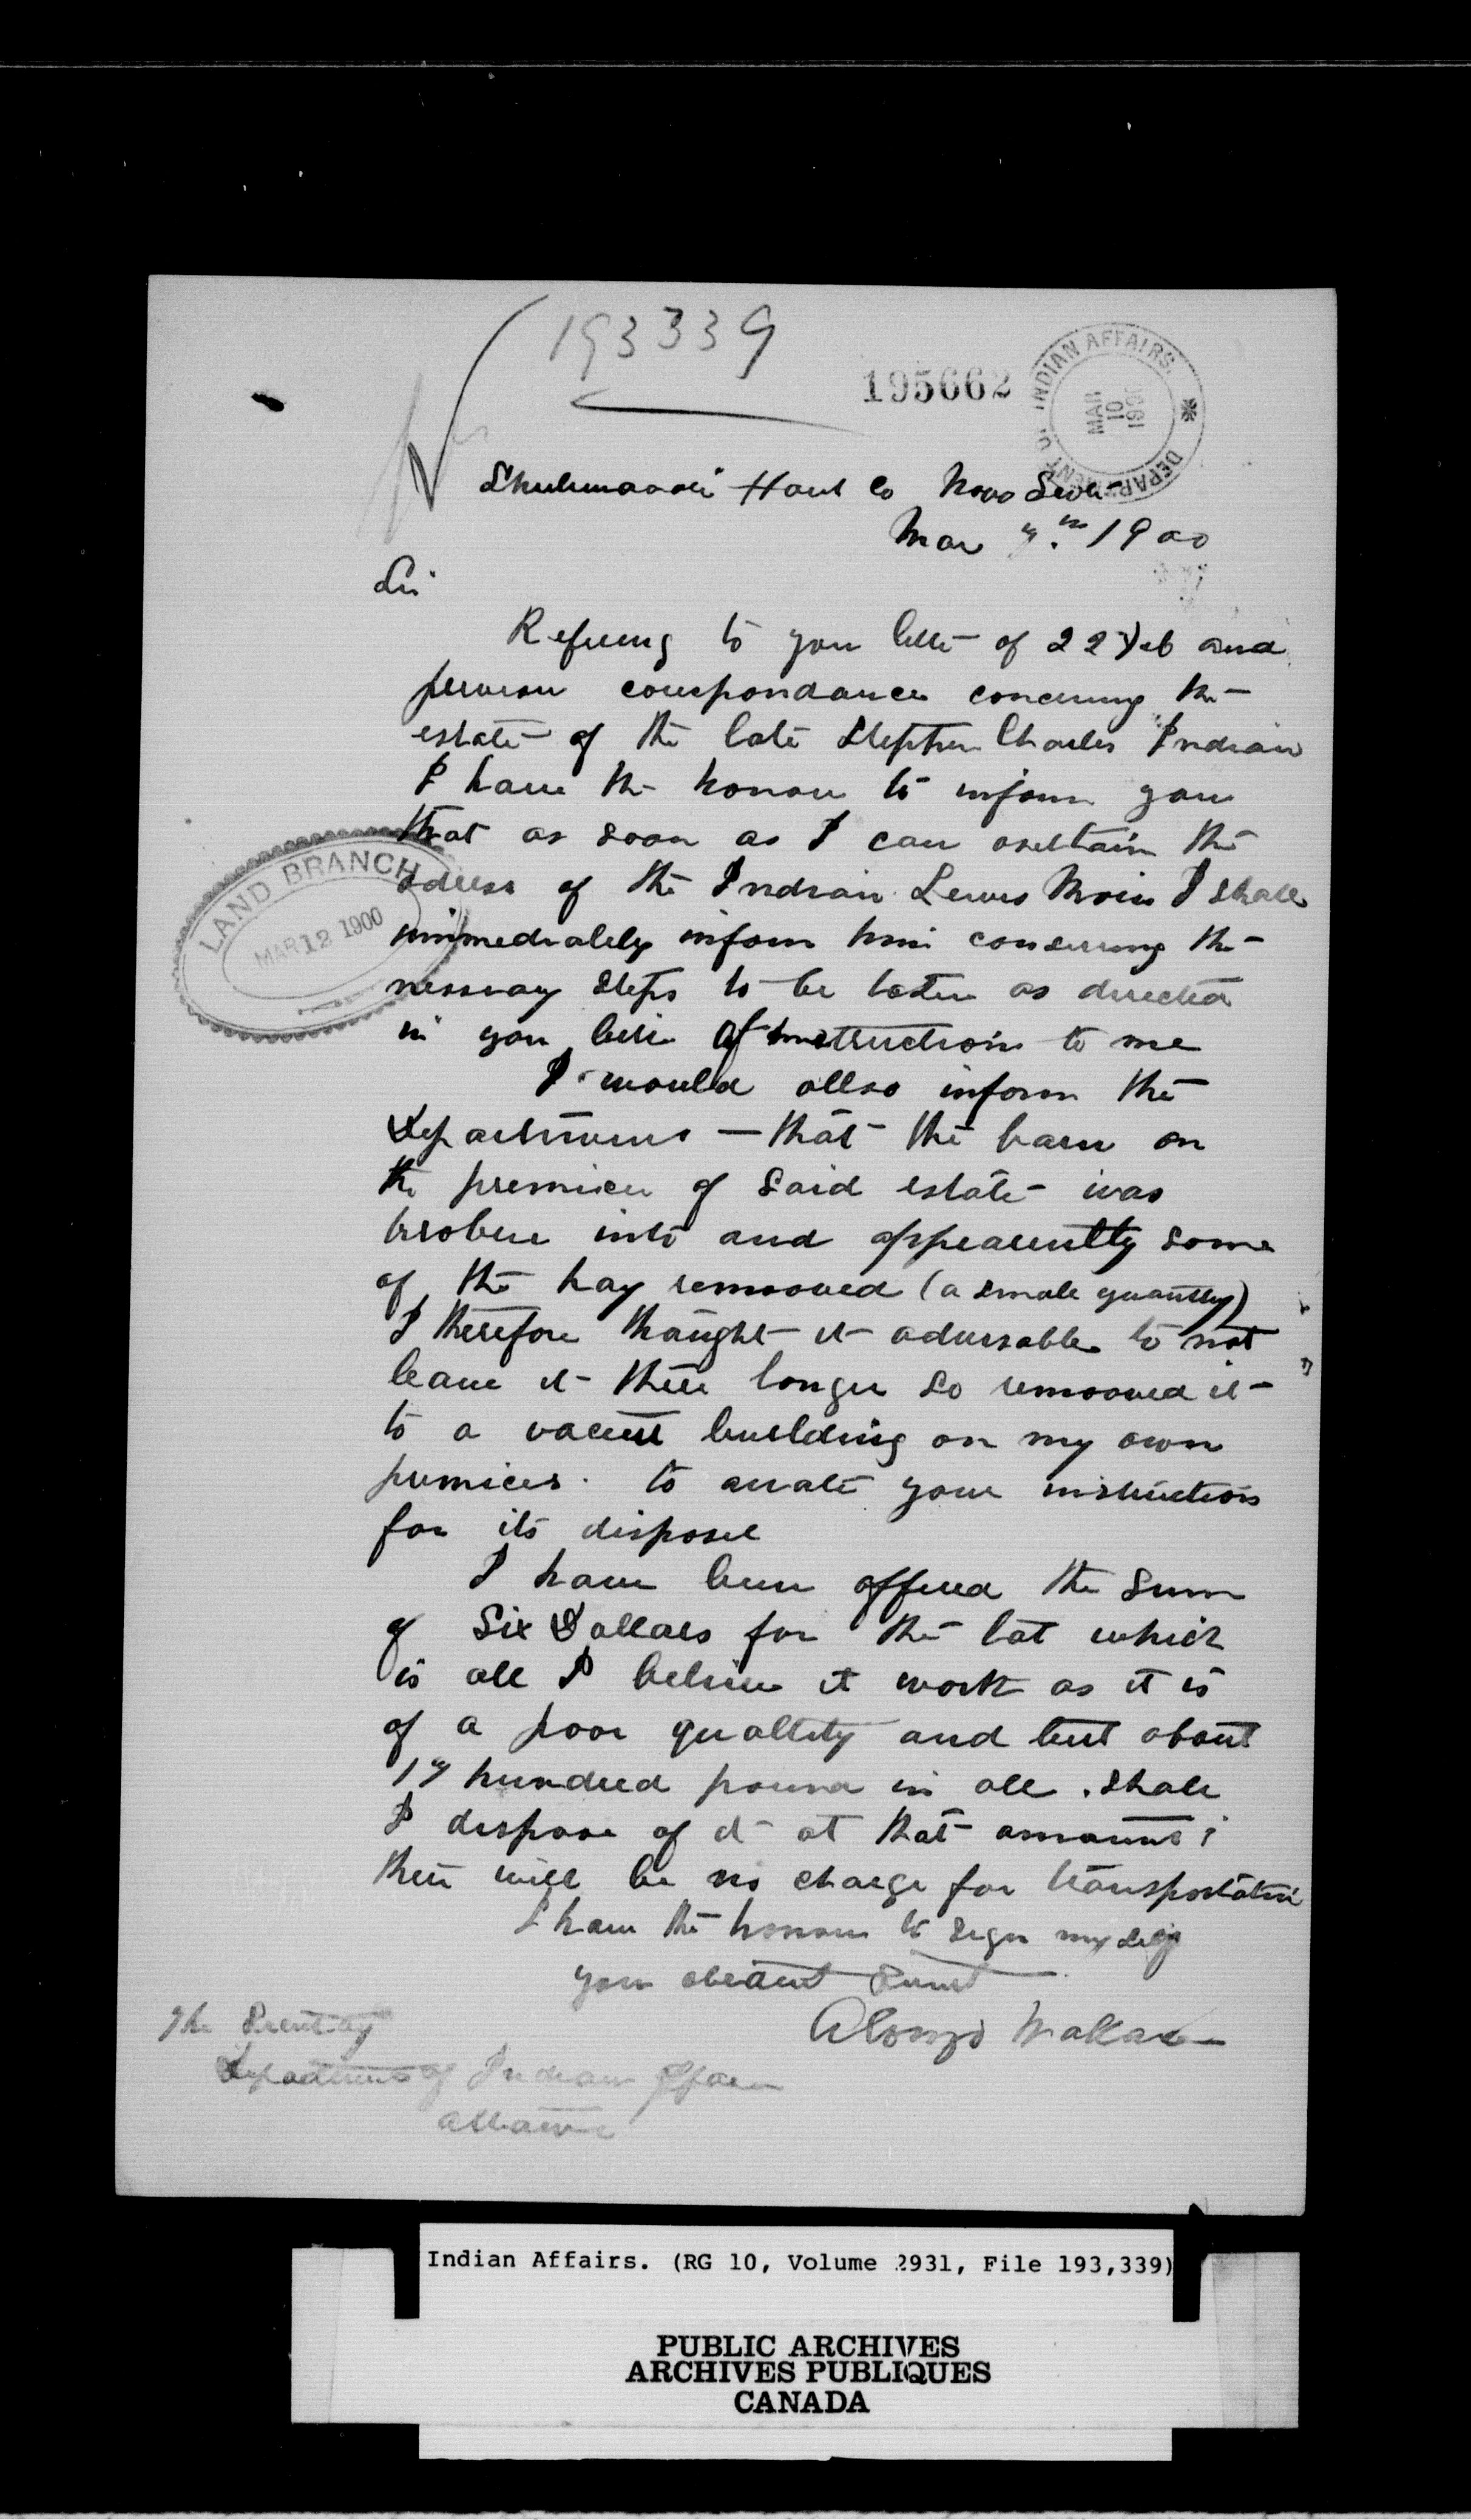 193339
195662
DEPARTMENT OF INDIAN AFFAIRS.
MAR
10
1900
Shubenacadie Hants Co Nova Scotia
Mar 7th 1900
Sir
Refering to your letter of 22 Feb and
correspondance concerning the
estate of the late Stephen Charles Indian
I have the honour to inform you
that as soon as I can asertain the
adress of the Indian Lewis I shall
immediately inform him conserning the
nessesary steps to be taken as directed
in your letter of instruction to me
I would allso inform the
Department — that the barn on
the premices of said estate was
broken into and appearently some
of the hay remooved (a small quantity)
I therefore thought it advisable to not
leave it there longer so remooved it
to a vacent building on my own
premices. to await your instructions
for its disposel
I have been offered the sum
of Six Dollars for the lot which
is all I believe it worth as it is
of a poor quallity and but about
17 hundred pound in all. Shall
I dispose of it at that amount?
there will be no charge for transportation
I have the honour to sign my self
your obediant Servant
Alonzo Wallace
The Secretary
Department of Indian Affairs
Ottawa
LAND BRANCH
MAR 12 1900
Indian Affairs. (RG 10, Volume 2931, File 193,339)
PUBLIC ARCHIVES
ARCHIVES PUBLIQUES
CANADA